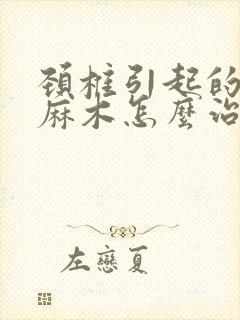 頸椎引起的
麻木怎麼治
左戀夏